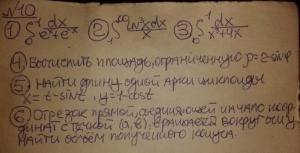 №10
① ∫₀¹ dx/(eˣ+e⁻ˣ) ② ∫₁^∞ dx/x ③ ∫₀¹ dx/(x²+4x)
④ Вычислить площадь, ограниченную ρ=2sinφ
⑤ Найти длину одной арки циклоиды
x=t-sint, y=1-cost
⑥ Отрезок прямой, соединяющей начало коор
динат с точкой (a,b), вращается вокруг оси y.
Найти объем полученного конуса.